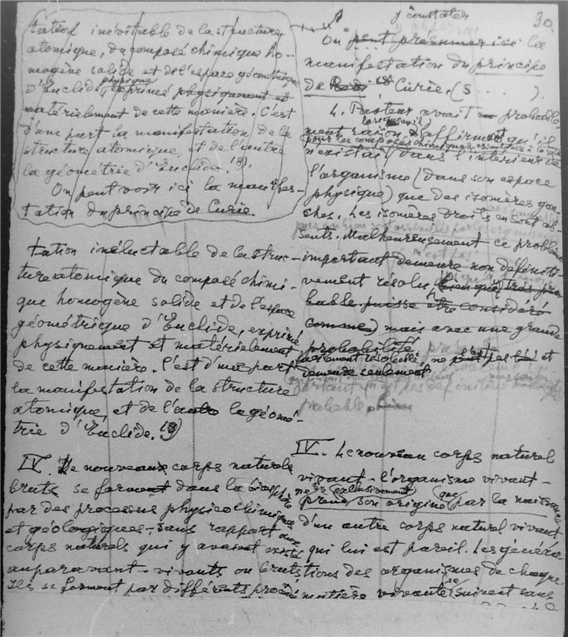 30
tation inévitable de la structure
atomique, du composé chimique ho-
mogène solide et de l'espace géométrique
d'Euclide, exprimés physiquement et
matériellement de cette manière. C'est
d'une part la manifestation de la
structure atomique, et de l'autre
la géométrie d'Euclide.
On peut voir ici la manifes-
tation du principe de Curie.
tation inéluctable de la struc-
ture atomique du composé chimi-
que homogène solide et de l'espace
géométrique d'Euclide, exprimé
physiquement et matériellement
de cette manière. C'est d'une part
la manifestation de la structure
atomique, et de l'autre la géomé-
trie d'Euclide.
IV. De nouveaux corps naturels
bruts se forment dans la biosphère
par des processus physicochimiques
et géologiques, sans rapport aux
corps naturels qui y avaient existé
auparavant - vivants ou bruts
Ils se forment par différents procé-
y constater
On peut présumer ici la
manifestation du principe
de Curie (s . . . . ).
4. Pasteur avait probable-
ment raison lorsqu'il affirmait qu'il
n'existait dans l'intérieur de
l'organisme (dans son espace
physique) que des isomères gau-
ches. Les isomères droits en sont ab-
sents. Malheureusement ce problème
important demeure non définiti-
vement résolu, bien que très pro-
bable puisse être considéré
comme) mais avec une grande
probabilité
demeure seulement
probable
IV. Le nouveau corps naturel
vivant - l'organisme vivant -
ne prend exclusivement son origine que par la naissance
d'un autre corps naturel vivant
qui lui est pareil. Les généra-
tions des organismes de chaque
matière vivante se suivent sans